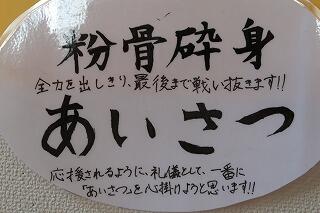 粉骨砕身
全力を出しきり、最後まで戦い抜きます!!
あいさつ
応援されるように、礼儀として、一番に
「あいさつ」を心掛けようと思います!!